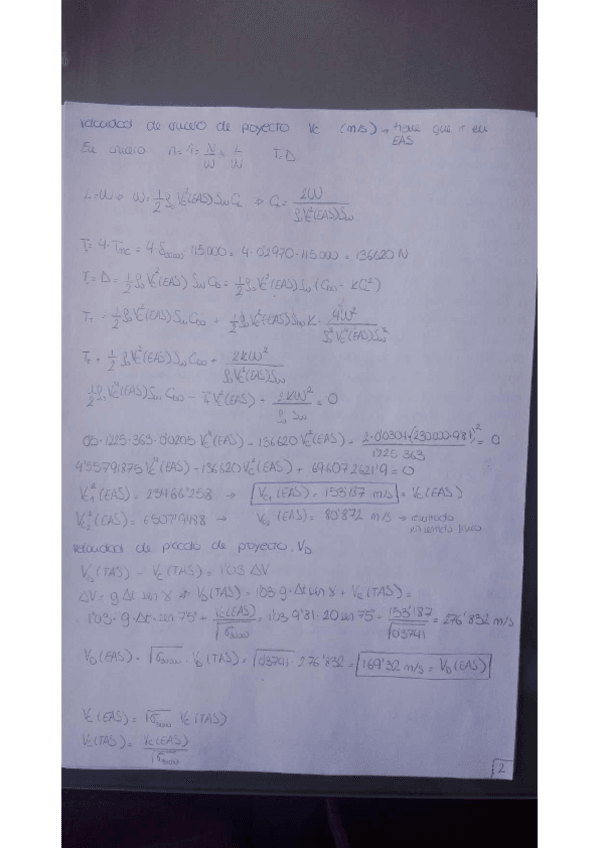 velocidad de crucero de proyecto Vc (m/s) → tiene que ir en
EAS
En crucero n=1= N/W = L/W T=D
L=W → W= 1/2 ρ₀ Vc²(EAS) Sw CL → CL= 2W / ρ₀Vc²(EAS)Sw
Tr= 4·Tmc = 4·δ30000·115000 = 4·0'2970·115000 = 136620 N
Tr= D= 1/2 ρ₀ Vc²(EAS) Sw CD = 1/2 ρ₀ Vc²(EAS) Sw (CD0 + KCL²)
Tr = 1/2 ρ₀ Vc²(EAS) Sw CD0 + 1/2 ρ₀ Vc²(EAS) Sw K · 4W² / ρ₀² Vc⁴(EAS) Sw²
Tr = 1/2 ρ₀ Vc²(EAS) Sw CD0 + 2KW² / ρ₀Vc²(EAS)Sw
1/2 ρ₀ Vc⁴(EAS) Sw CD0 − Tr Vc²(EAS) + 2KW² / ρ₀ Sw = 0
0'5·1'225·363·0'0205 Vc⁴(EAS) − 136620 Vc²(EAS) + 2·0'0304·(230000·9'81)² / 1'225·363 = 0
4'55791875 Vc⁴(EAS) − 136620 Vc²(EAS) + 696072621'9 = 0
Vc1²(EAS) = 23466'258 → Vc1(EAS) = 153'187 m/s = Vc(EAS)
Vc2²(EAS) = 6507'9488 → Vc2(EAS) = 80'672 m/s → resultado
sin sentido físico
velocidad de picado de proyecto, VD
VD(TAS) − Vc(TAS) = 1'03 ΔV
ΔV = g Δt sen γ → VD(TAS) = 1'03 g·Δt sen γ + Vc(TAS) =
= 1'03·g·Δt·sen 75° + Vc(EAS)/√σ30000 = 1'03·9'81·20 sen 75° + 153'187/√0'3741 = 276'832 m/s
VD(EAS) = √σ30000 · VD(TAS) = √0'3741 · 276'832 = 169'32 m/s = VD(EAS)
Vc(EAS) = √σ30000 Vc(TAS)
Vc(TAS) = Vc(EAS)/√σ30000
2